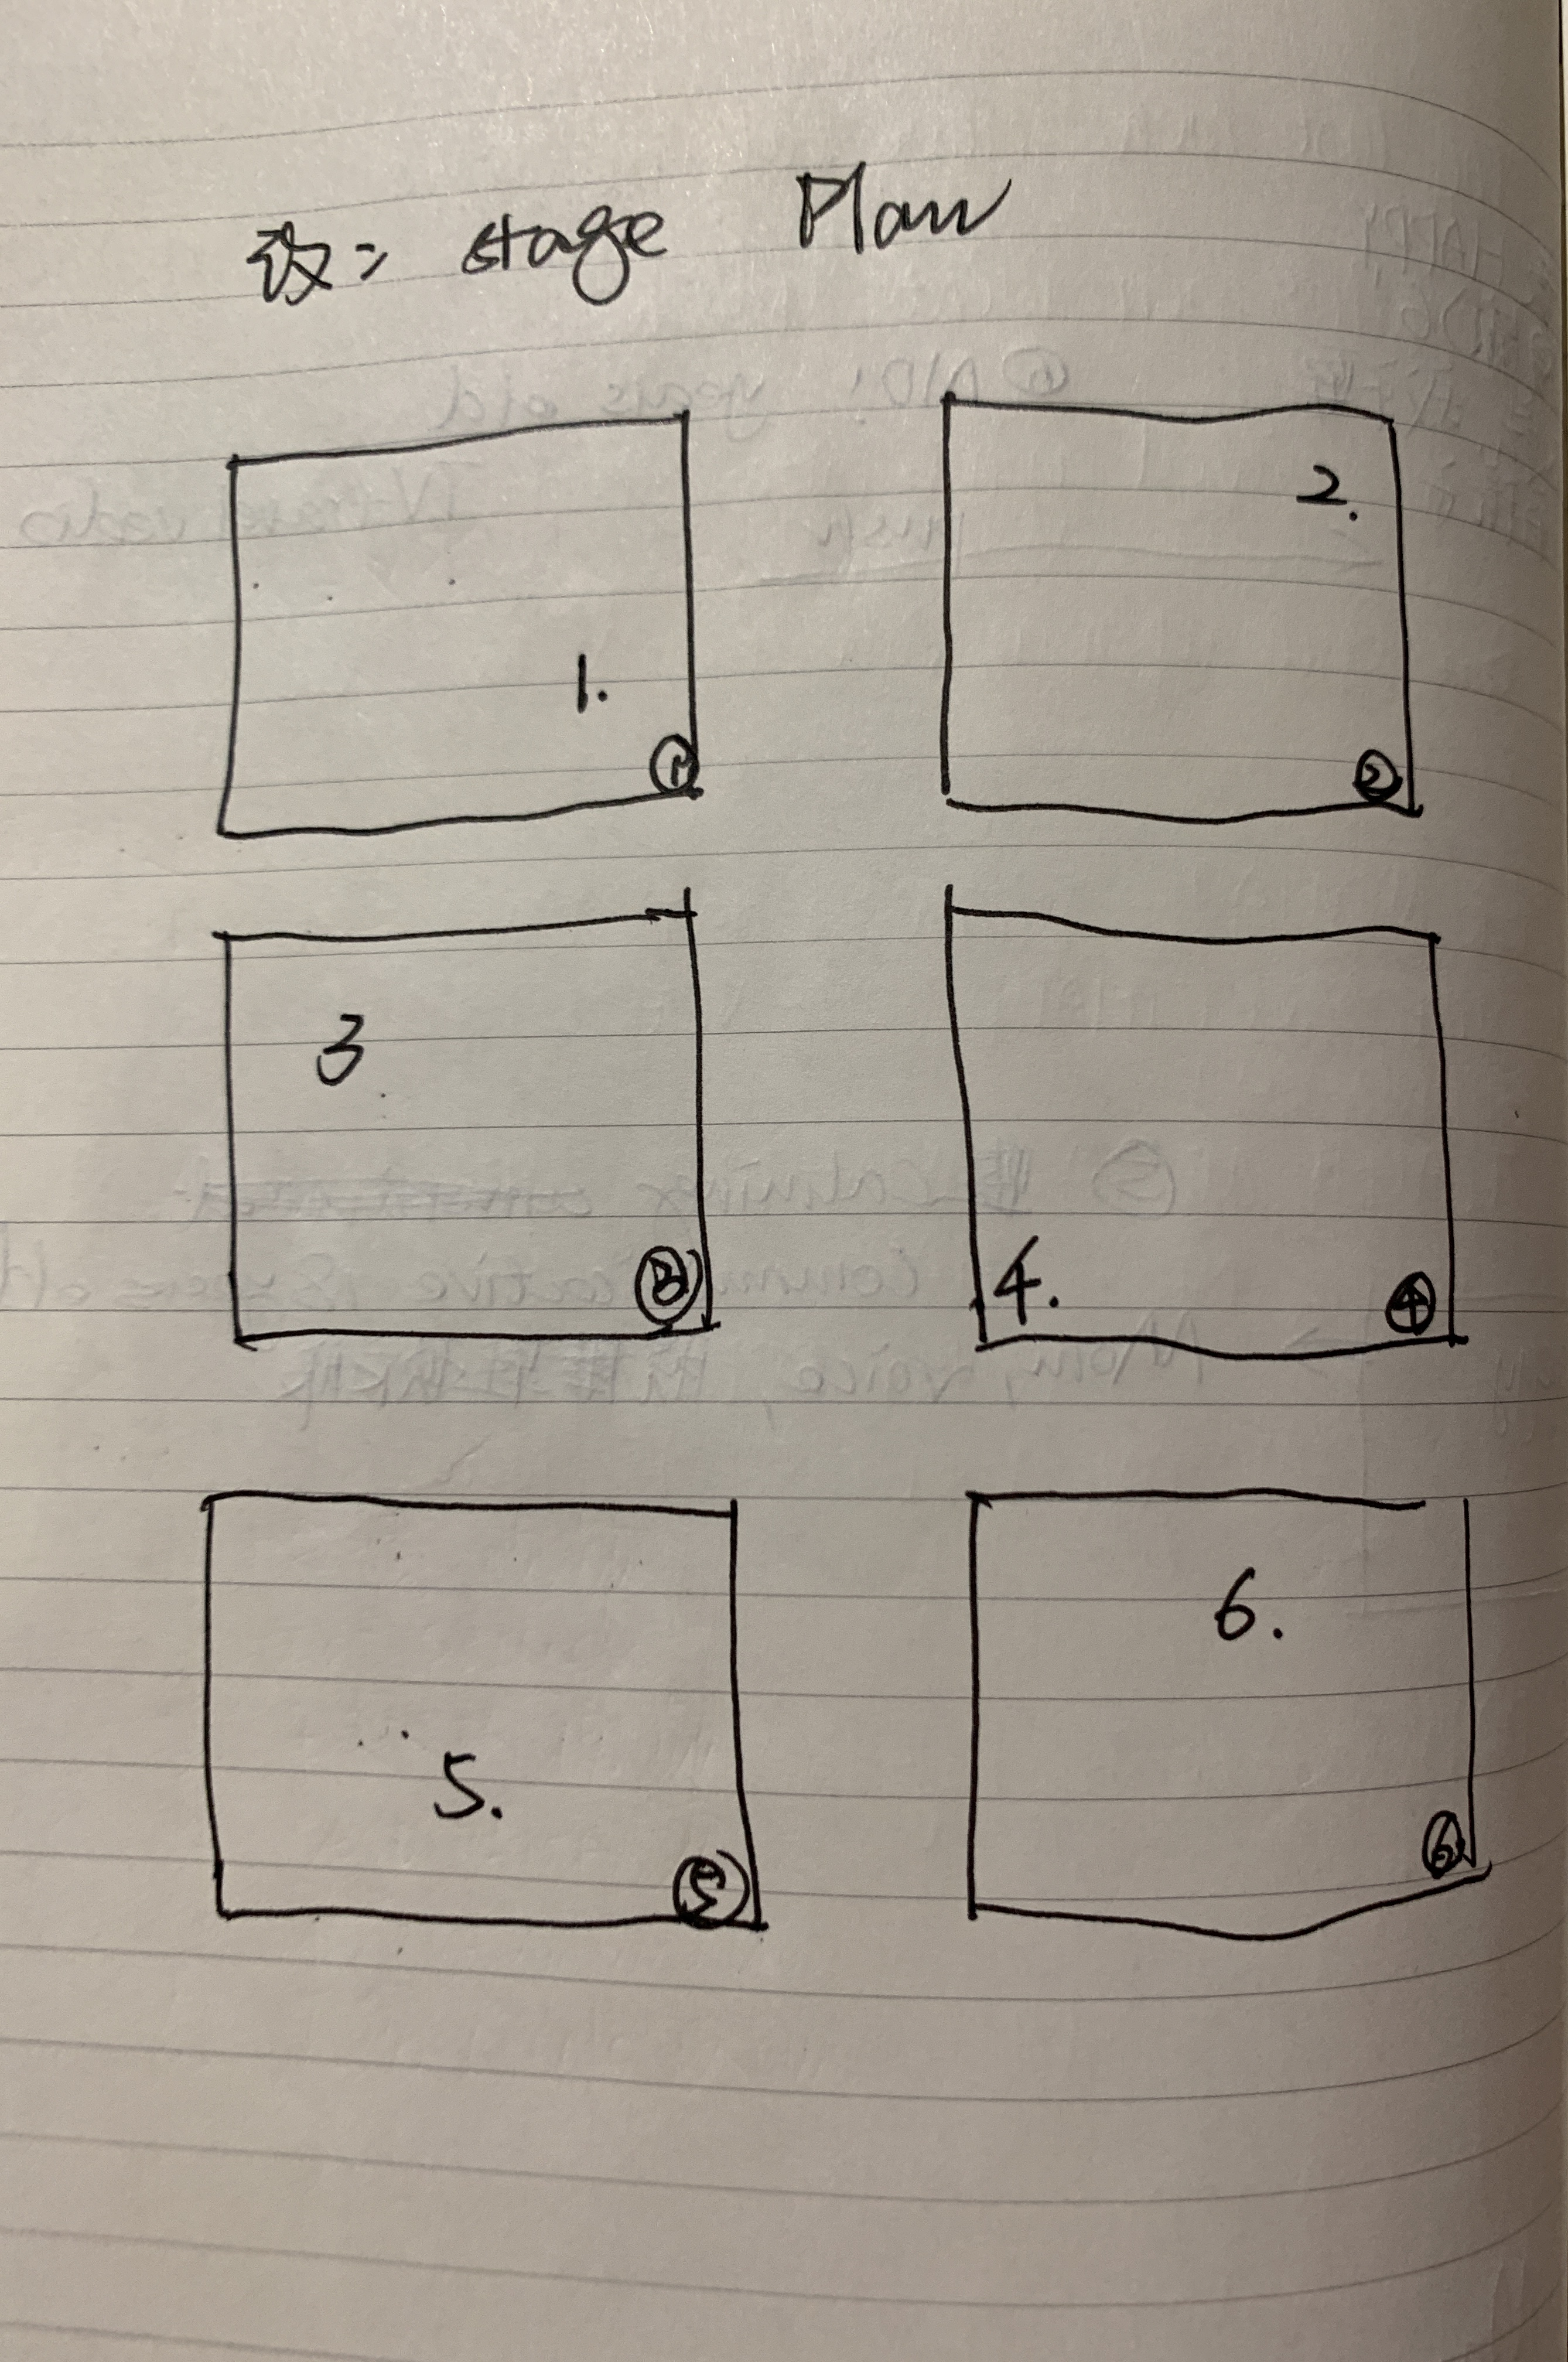 设: stage Plan
1.
①
2.
②
3
③
4.
④
5.
⑤
6.
⑥